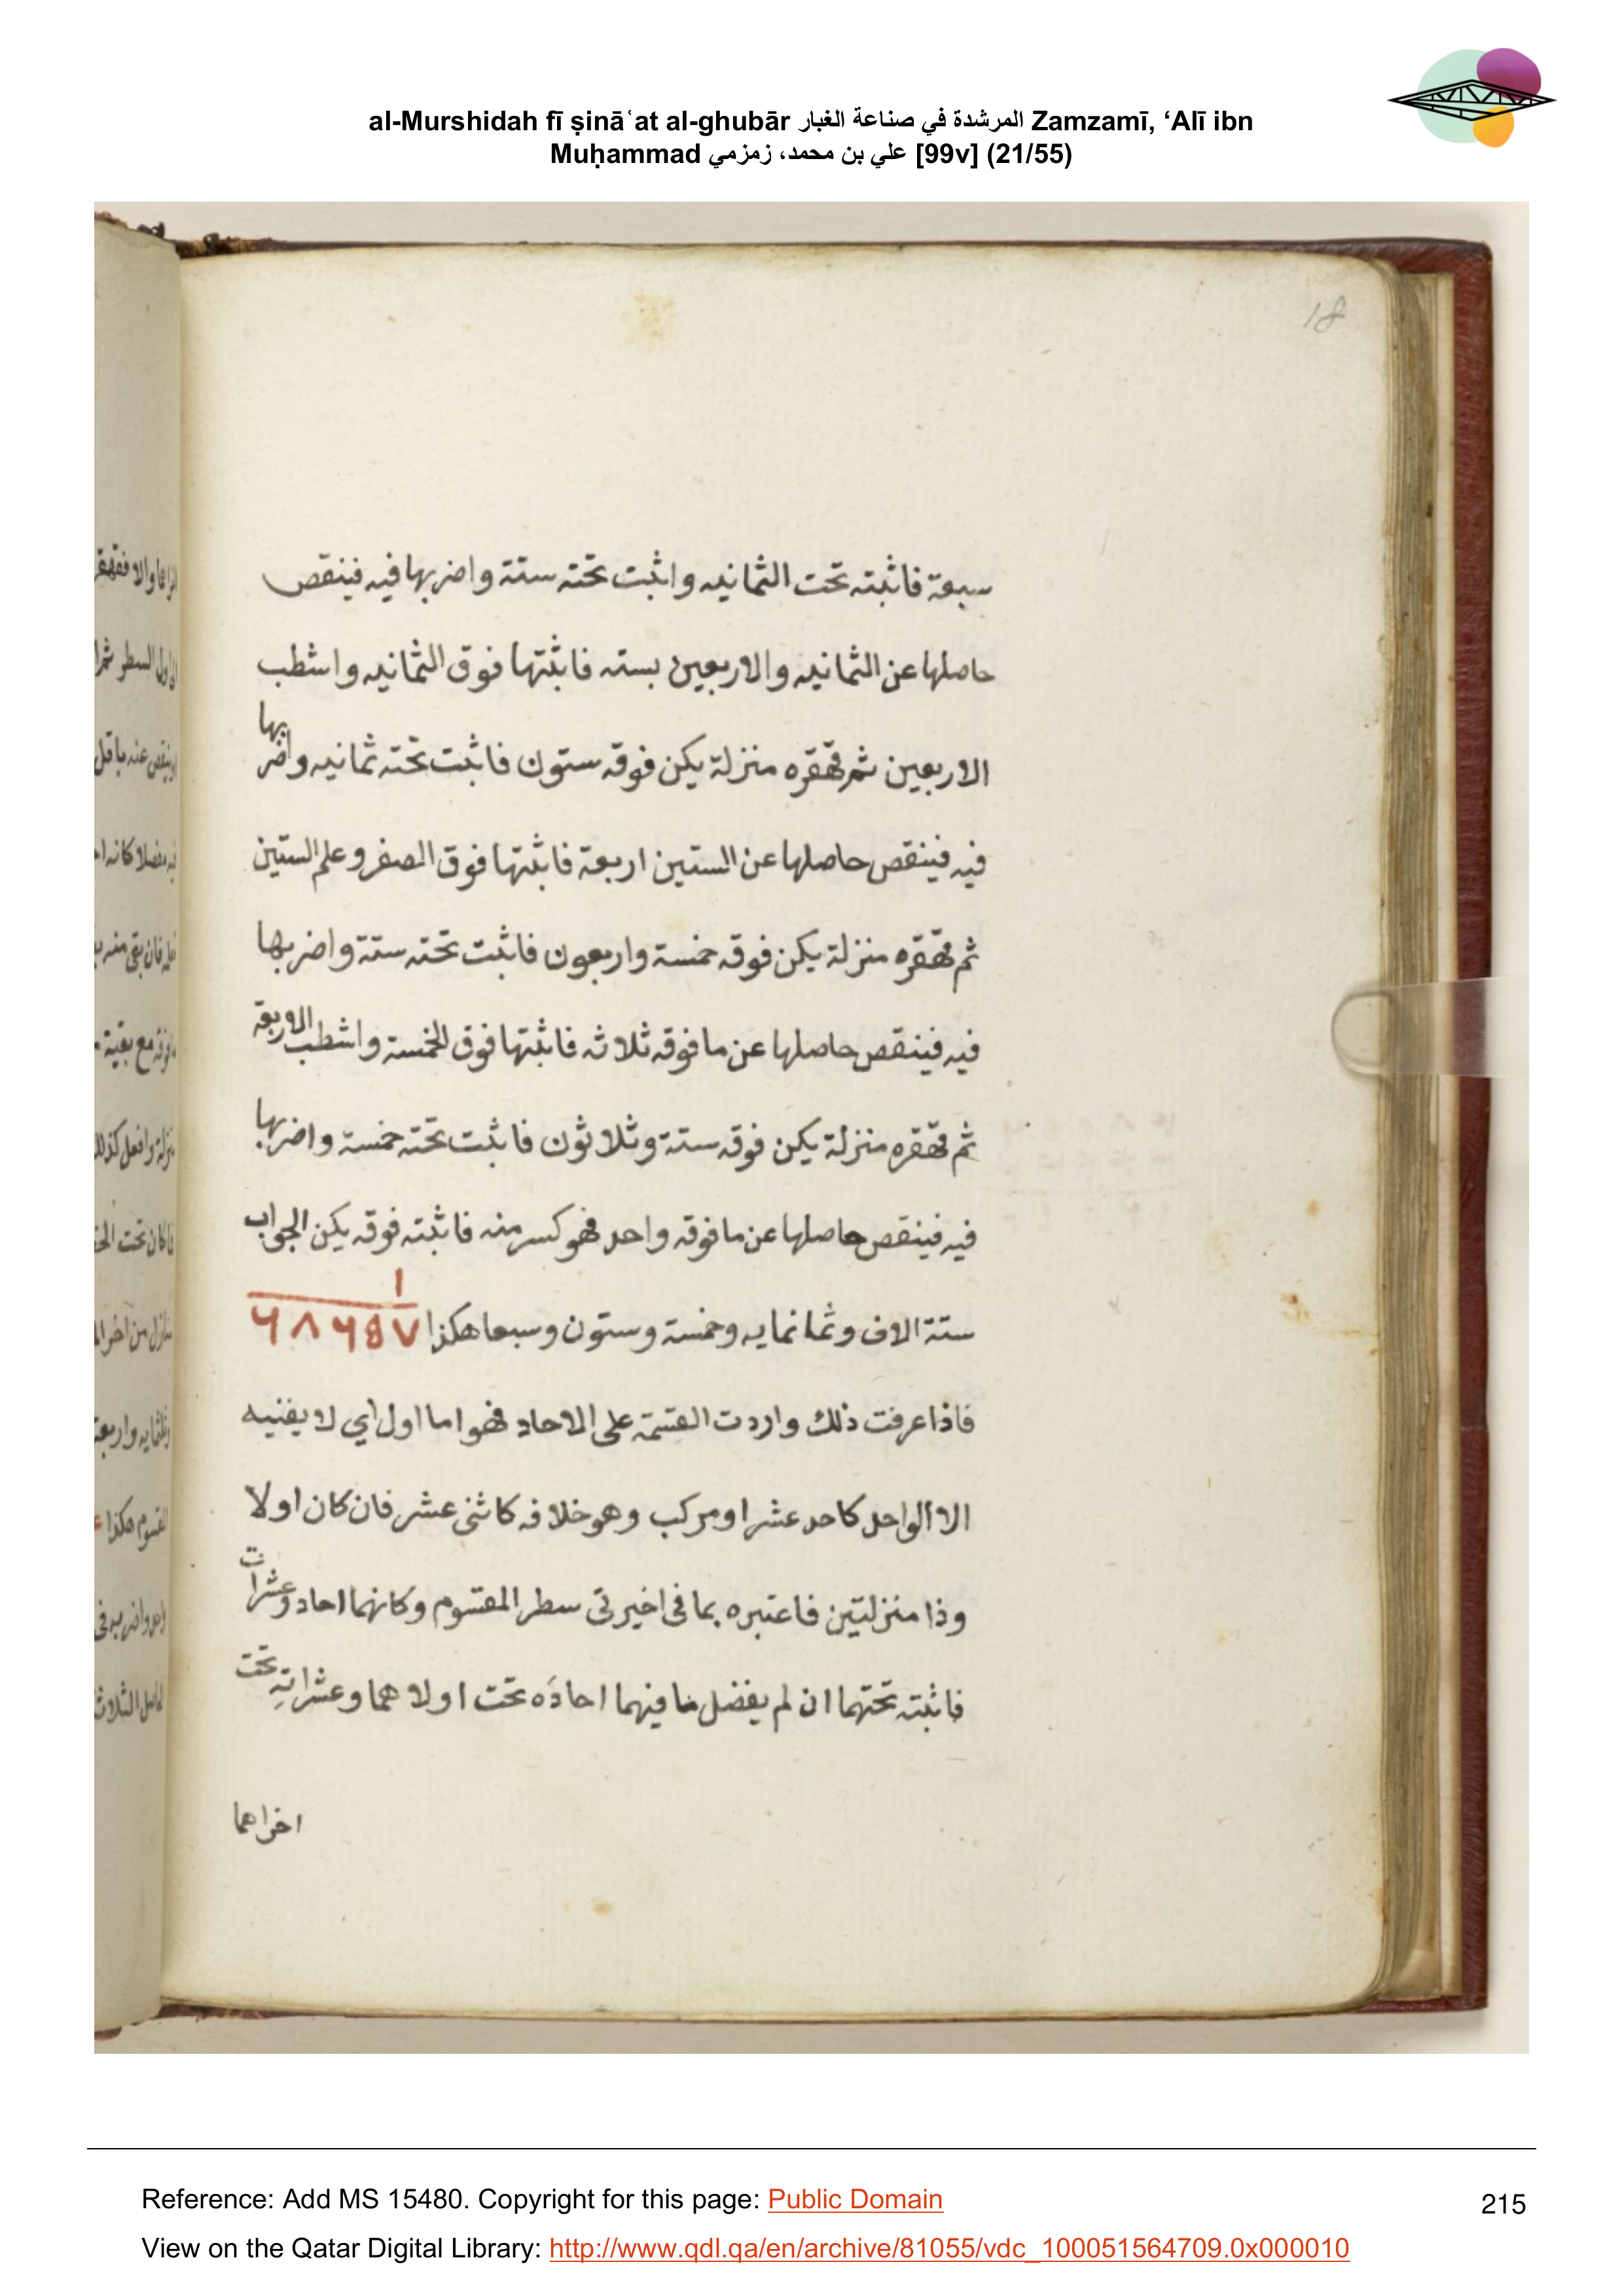 al-Murshidah fī ṣināʿat al-ghubār المرشدة في صناعة الغبار Zamzamī, ‘Alī ibn
Muḥammad علي بن محمد، زمزمي [99v] (21/55)
18
سبعة فاثبته تحت الثمانيه واثبت تحته ستة واضربها فيه فينقص
حاصلها عن الثمانيه والاربعين بسته فاثبتها فوق الثمانيه واشطب
الاربعين ثم قهقره منزلة يكن فوقه ستون فاثبت تحته ثمانيه واضربها
فيه فينقص حاصلها عن الستين اربعة فاثبتها فوق الصفر وعلم الستين
ثم قهقره منزلة يكن فوقه خمسة واربعون فاثبت تحته ستة واضربها
فيه فينقص حاصلها عن ما فوقه ثلاثه فاثبتها فوق الخمسة واشطب الاربعة
ثم قهقره منزلة يكن فوقه ستة وثلاثون فاثبت تحته خمسة واضربها
فيه فينقص حاصلها عن ما فوقه واحد فهو كسر منه فاثبته فوقه يكن الجواب
ستة الاف وثمانمايه وخمسة وستون وسبعا هكذا ١ ٦٨٦٥٧
فاذا عرفت ذلك واردت القسمة على الاحاد فهو اما اول اي لا يفنيه
الا الواحد كاحد عشر او مركب وهو خلافه كاثنى عشر فان كان اولا
وذا منزلتين فاعتبره بما في اخيرتى سطر المقسوم وكانهما احاد وعشرات
فاثبته تحتهما ان لم يفضل ما فيهما احادَه تحت اولاهما وعشراتِه تحت
اخراهما
Reference: Add MS 15480. Copyright for this page: Public Domain
215
View on the Qatar Digital Library: http://www.qdl.qa/en/archive/81055/vdc_100051564709.0x000010